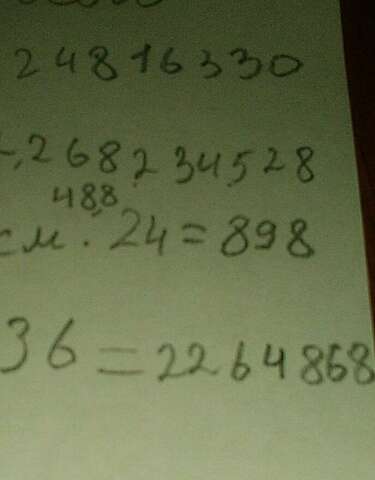 24816330
-,268234,528
48,8
см. 24=898
36=2264868